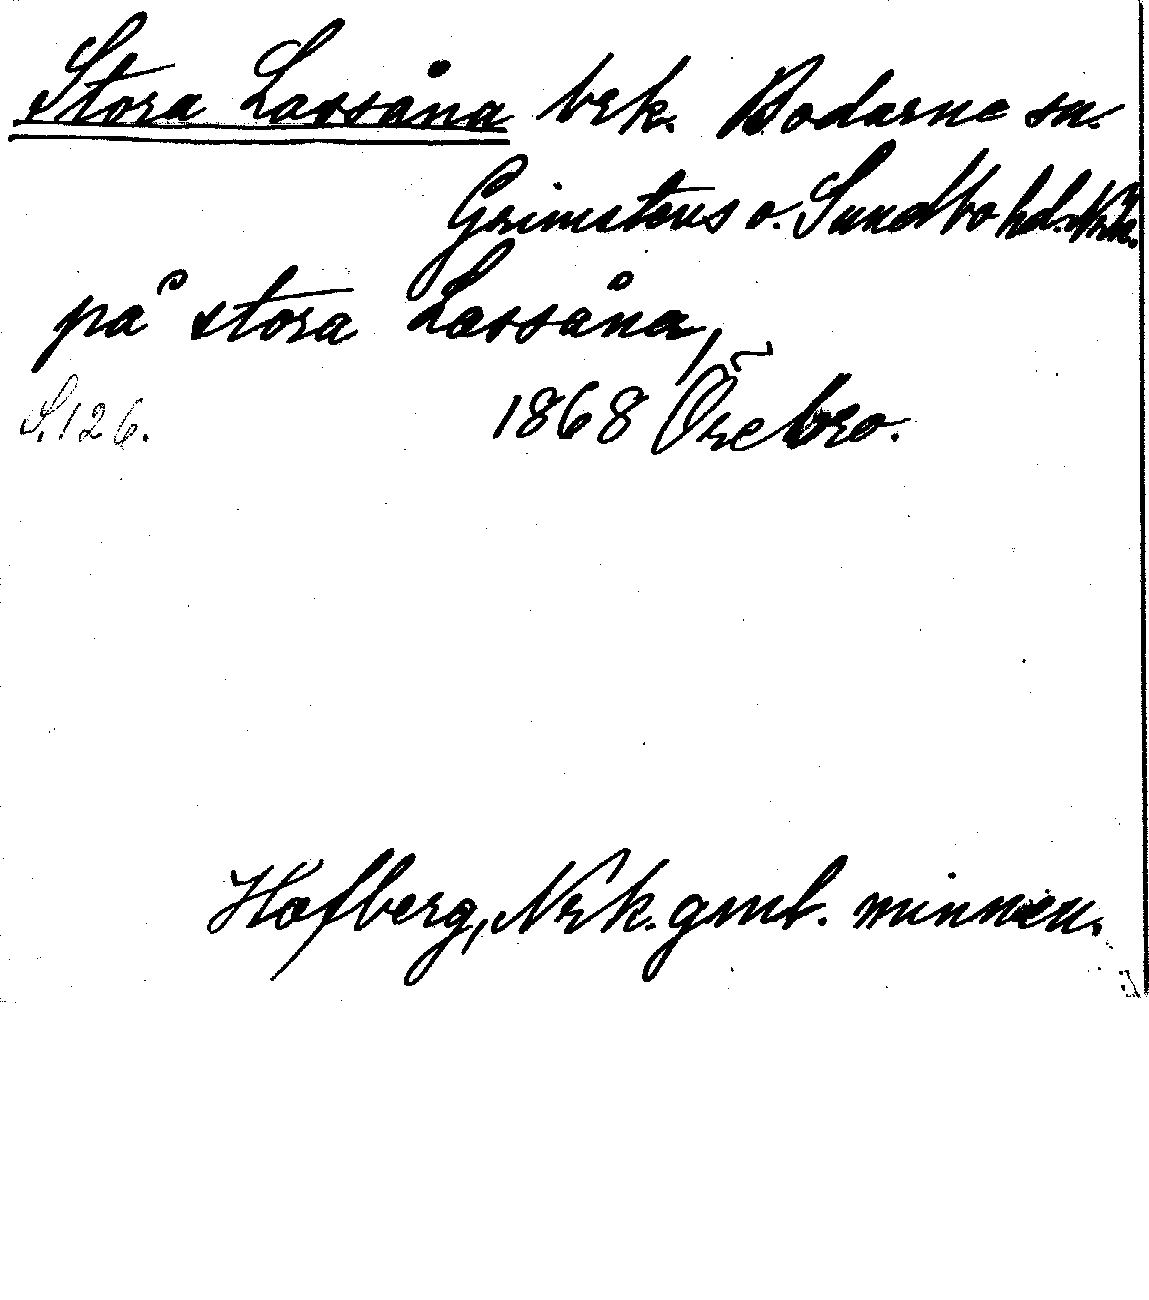 Stora Lassåna brk. Bodarne sn.
Grimstens o. Sundbo hd. Nrk.
på stora Lassåna,
S. 126. 1868 Örebro.
Hofberg, Nrk. gml. minnen.